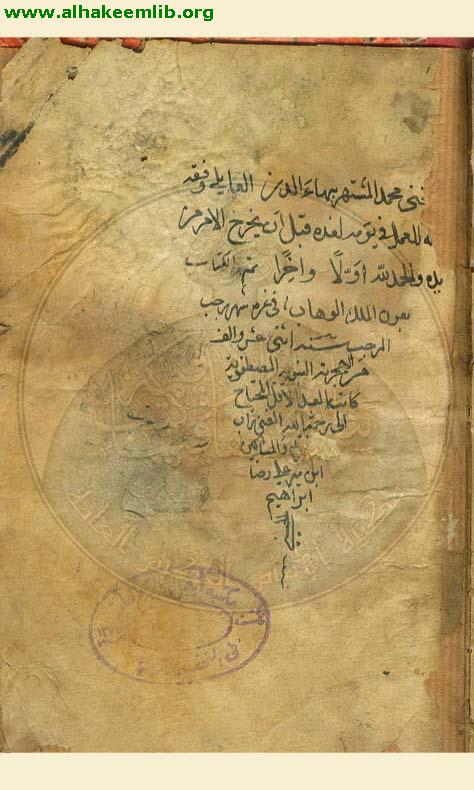 www.alhakeemlib.org
محمد المشتهر ببهاء الدين العاملي وفقه
للعمل في يومه لغده قبل ان يخرج الامر من
يده والحمد لله اوّلا واخرًا تم الكتاب
بعون الملك الوهاب في غرة شهر رجب
المرجب سنة اثنى عشر والف
من الهجرة النبوية المصطفوية
كاتبه العبد الاقل المحتاج
الى رحمة الله الغني
ابن مير علي رضا
ابراهيم
مكتبة
في النجف